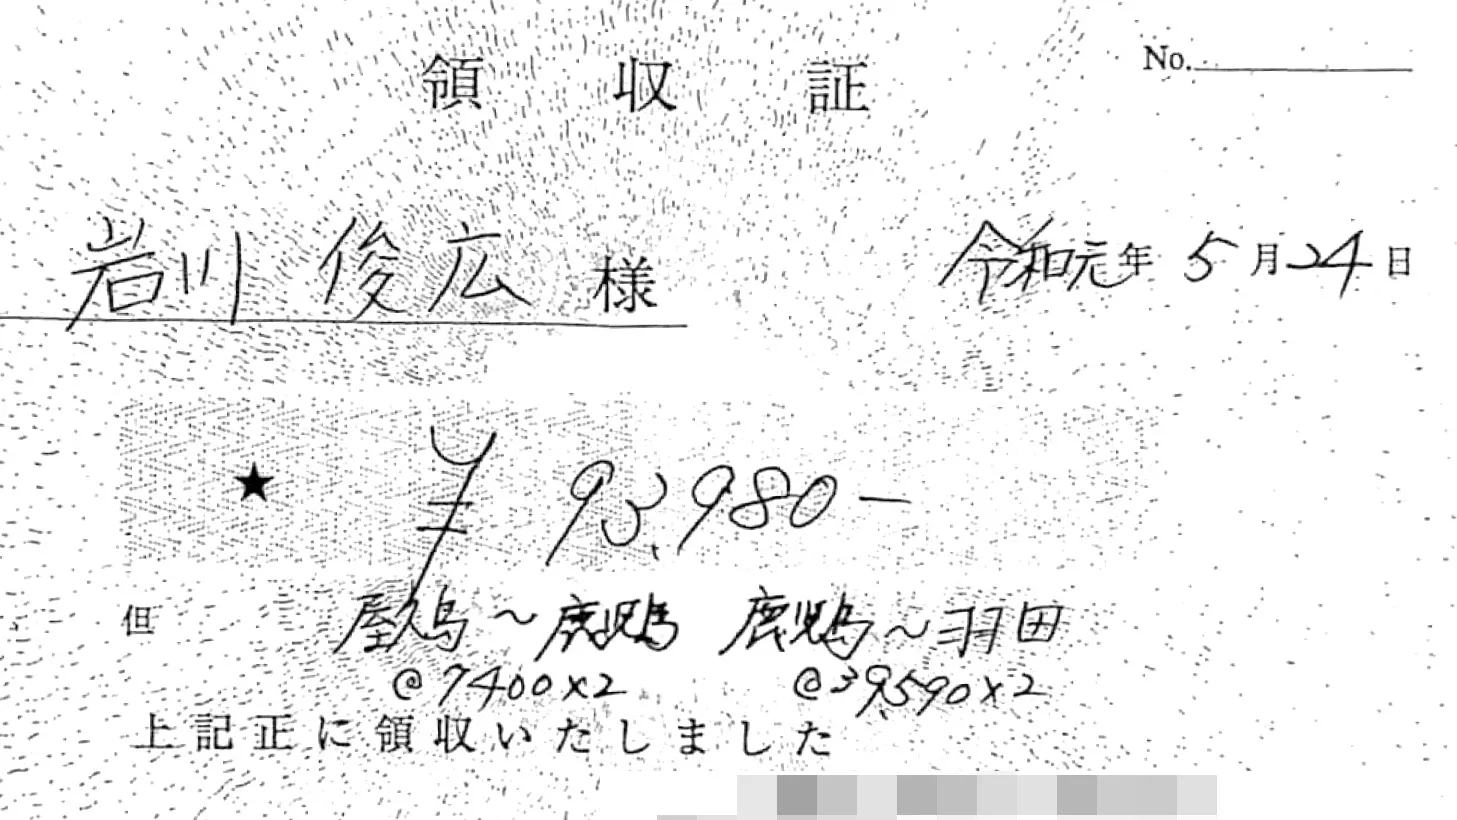 領収証
No.
岩川 俊広 様
令和元年 5月24日
★ ¥93,980-
但 屋久島〜鹿児島 鹿児島〜羽田
@7400×2 @39,590×2
上記正に領収いたしました